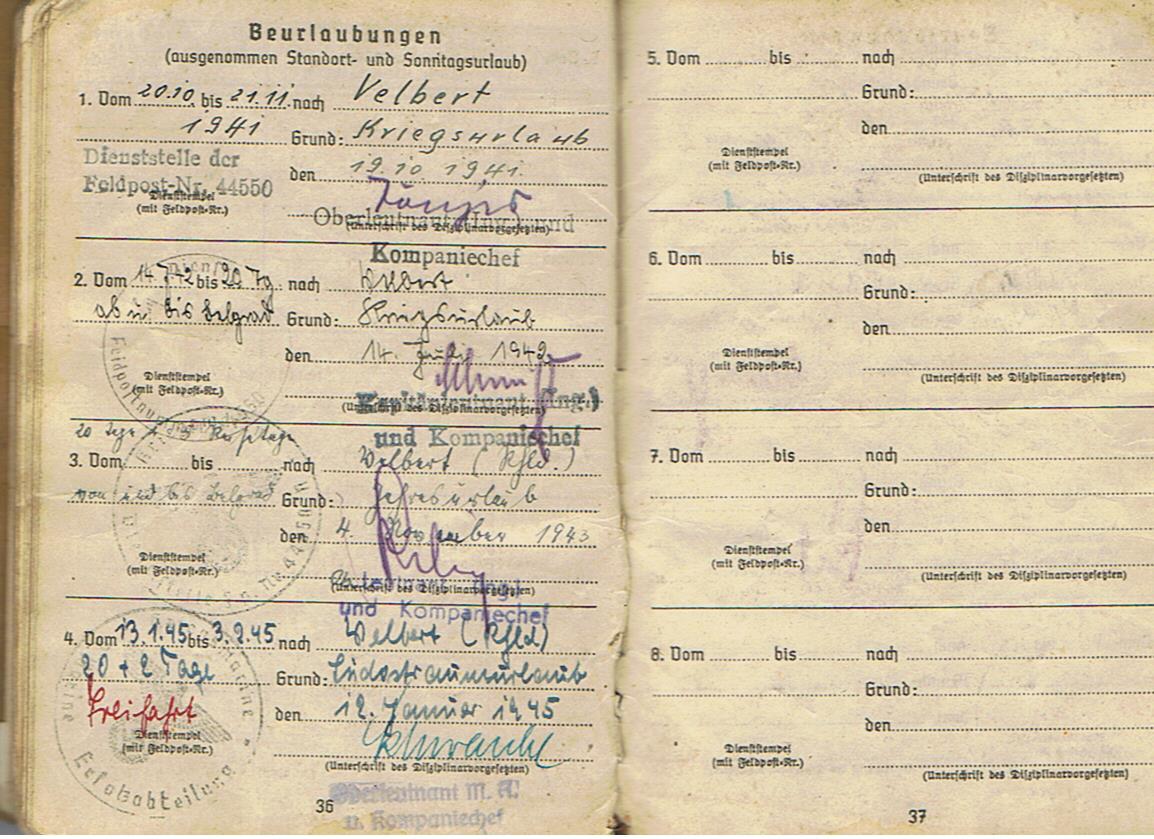 Beurlaubungen
(ausgenommen Standort- und Sonntagsurlaub)
1. Vom 20.10. bis 21.11. nach Velbert
1941 Grund: Kriegsurlaub
Dienststelle der
Feldpost-Nr. 44550
den 19.10.1941.
Dienststempel
(mit Feldpost-Nr.)
Oberleutnant (Ing.) und
(Unterschrift des Disziplinarvorgesetzten)
Kompaniechef
2. Vom 14.7.42 bis nach Velbert
ab u. bis Belgrad Grund: Kriegsurlaub
den 14. Juli 1942
Dienststempel
(mit Feldpost-Nr.)
Kapitänleutnant (Ing.)
(Unterschrift des Disziplinarvorgesetzten)
und Kompaniechef
20 Tage + Reisetage
3. Vom bis nach Velbert (Rhld.)
von und bis Belgrad Grund: Jahresurlaub
den 4. November 1943
Dienststempel
(mit Feldpost-Nr.)
Oberleutnant (Ing.)
(Unterschrift des Disziplinarvorgesetzten)
und Kompaniechef
4. Vom 13.1.45 bis 3.2.45 nach Velbert (Rhld)
20 + 2 Tage Grund: Südostraumurlaub
Freifahrt den 12. Januar 1945
Dienststempel
(mit Feldpost-Nr.)
(Unterschrift des Disziplinarvorgesetzten)
Oberleutnant M. A.
u. Kompaniechef
36
5. Vom bis nach
Grund:
den
Dienststempel
(mit Feldpost-Nr.)
(Unterschrift des Disziplinarvorgesetzten)
6. Vom bis nach
Grund:
den
Dienststempel
(mit Feldpost-Nr.)
(Unterschrift des Disziplinarvorgesetzten)
7. Vom bis nach
Grund:
den
Dienststempel
(mit Feldpost-Nr.)
(Unterschrift des Disziplinarvorgesetzten)
8. Vom bis nach
Grund:
den
Dienststempel
(mit Feldpost-Nr.)
(Unterschrift des Disziplinarvorgesetzten)
37